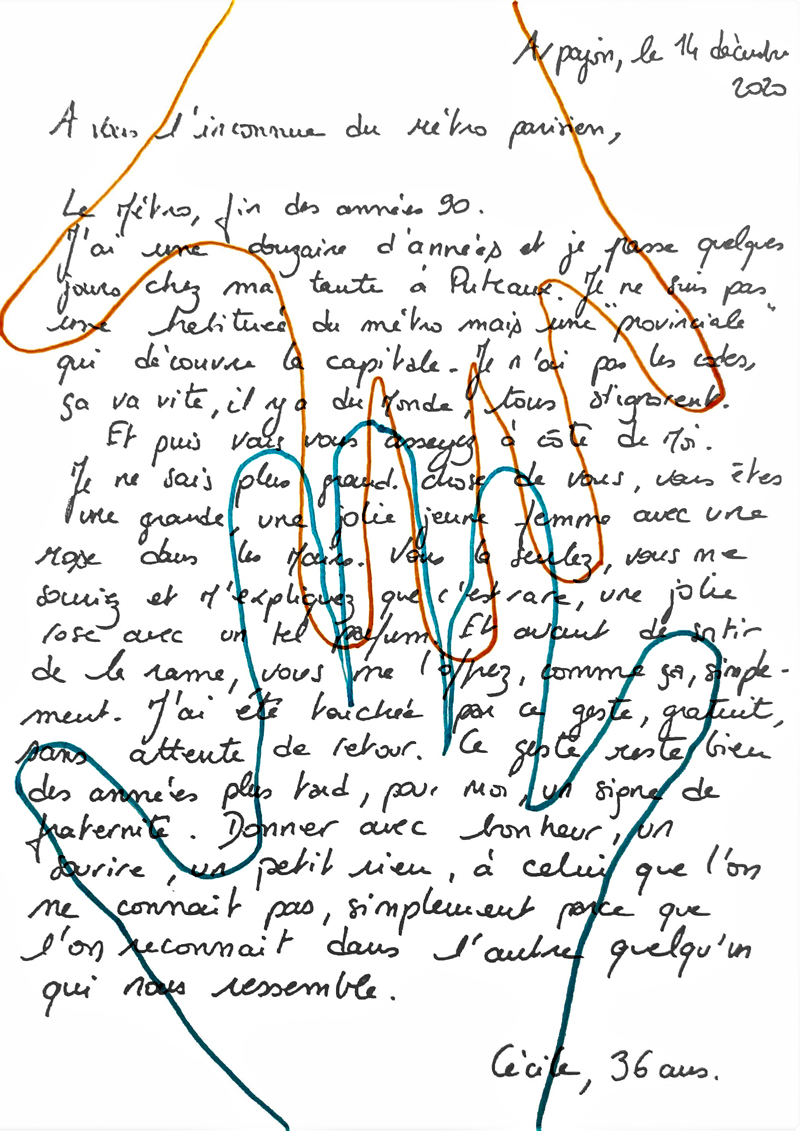 Arpajon, le 14 décembre
2020
A vous l'inconnue du métro parisien,
Le Métro, fin des années 90.
J'ai une douzaine d'années et je passe quelques
jours chez ma tante à Puteaux. Je ne suis pas
une habituée du métro mais une "provinciale"
qui découvre la capitale. Je n'ai pas les codes,
ça va vite, il y a du Monde, tous s'ignorent.
Et puis vous vous asseyez à côté de Moi.
Je ne sais plus grand chose de vous, vous êtes
une grande, une jolie jeune femme avec une
rose dans les Mains. Vous la sentez, vous me
souriez et M'expliquez que c'est rare, une jolie
rose avec un tel parfum. Et avant de sortir
de la rame, vous me l'offrez, comme ça, simple-
ment. J'ai été touchée par ce geste, gratuit,
sans attente de retour. Ce geste reste bien
des années plus tard, pour Moi, un signe de
fraternité. Donner avec bonheur, un
sourire, un petit rien, à celui que l'on
ne connait pas, simplement parce que
l'on reconnait dans l'autre quelqu'un
qui nous ressemble.
Cécile, 36 ans.